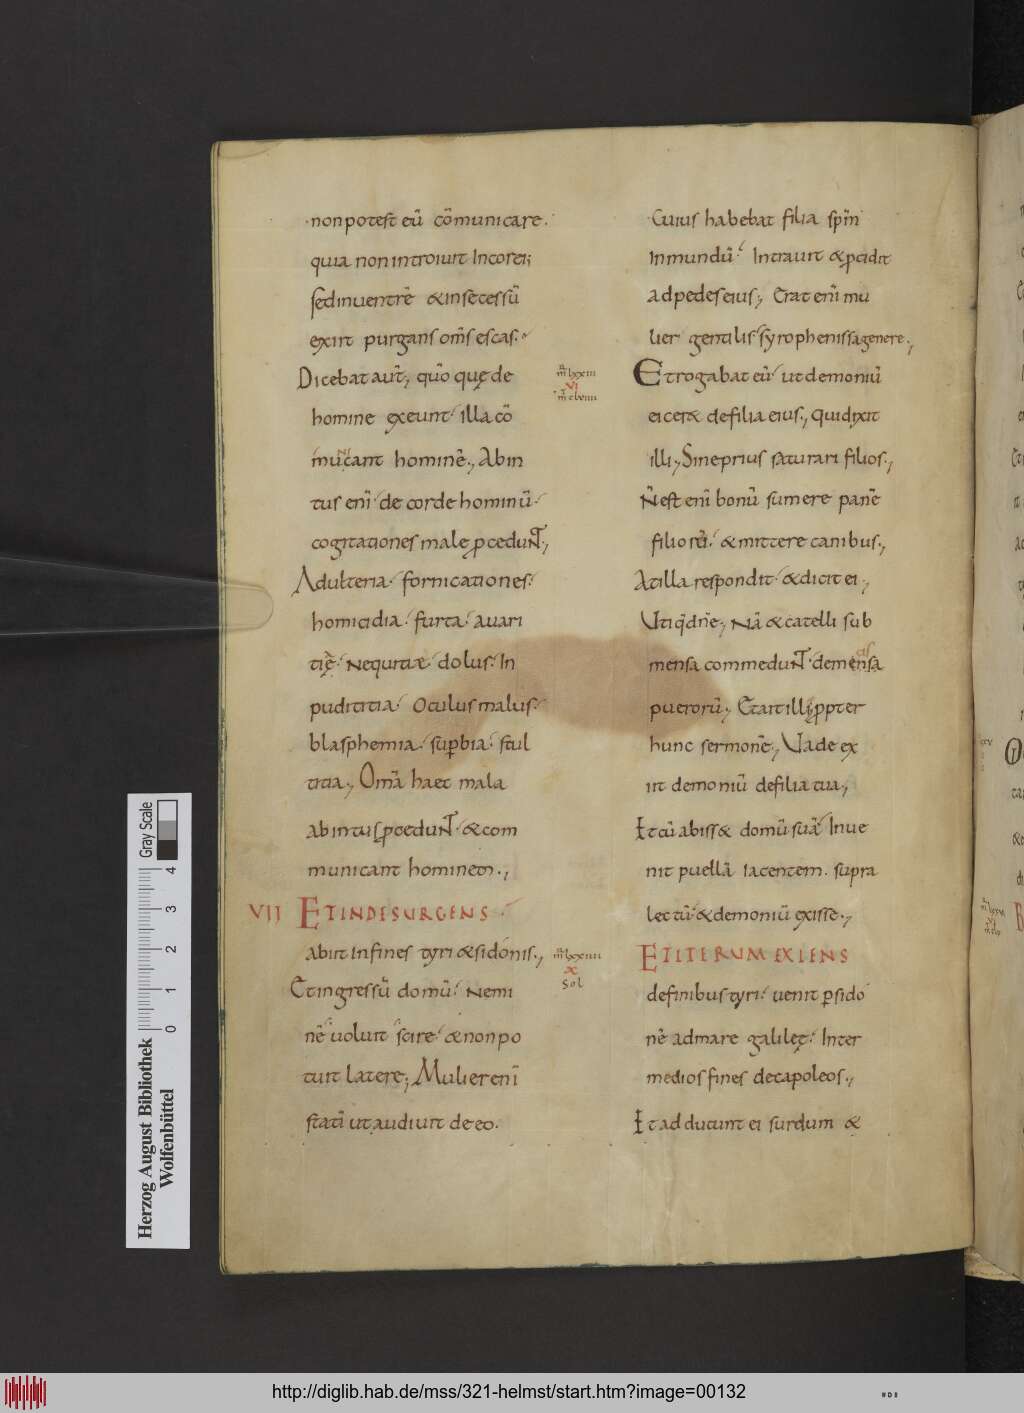 non potest eū cōmunicare.
quia non introiuit In cor ei;
sed in uentrē & in secessū
exiit purgans om̄s escas.
Dicebat aut̄; qūo quę de
homine exeunt illa cō
municant hominē; Ab in
tus enī de corde hominū
cogitationes male ꝓcedunt;
Adulteria fornicationes
homicidia furta auari
tię nequitiæ dolus In
pudicitia Oculus malus
blasphemia suꝑbia stul
titia; Omā haec mala
ab intus ꝓcedunt & com
municant hominem.,
VII ET INDE SURGENS
abiit In fines tyri & sidonis.,
Et ingressū domū Nemi
nē uoluit scire & non po
tuit latere; Mulier enī
statī ut audiuit de eo.
m̄ lxxiii
VI
m̄ clxiiii
m̄ lxxiiii
X
Sol
Cuius habebat filia spm̄
Inmundū Intrauit & ꝓcidit
ad pedes eius; Erat enī mu
lier gentilis syrophenissa genere.,
Et rogabat eū ut demoniū
eicer& de filia eius., qui dixit
illi., Sine prius saturari filios.,
N̄ est enī bonū sumere panē
filiorū & mittere canibus.,
At illa respondit & dicit ei.,
Utiq̄ dn̄e; Nā & catelli sub
mensa commedunt de mensa
puerorū., Et ait illę ꝓpter
hunc sermonē; Uade ex
iit demoniū de filia tua;
Et cū abiss& domū suā Inue
nit puellā Iacentem supra
lectū & demoniū exisse.,
ET ITERUM EXIENS
de finibus tyri uenit ꝑ sido
nē ad mare galileę Inter
medios fines decapoleos.,
Et adducunt ei surdum &
Herzog August Bibliothek
Wolfenbüttel
0 1 2 3 4
Gray Scale
http://diglib.hab.de/mss/321-helmst/start.htm?image=00132